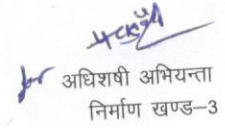 for अधिशषी अभियन्ता
निर्माण खण्ड–3